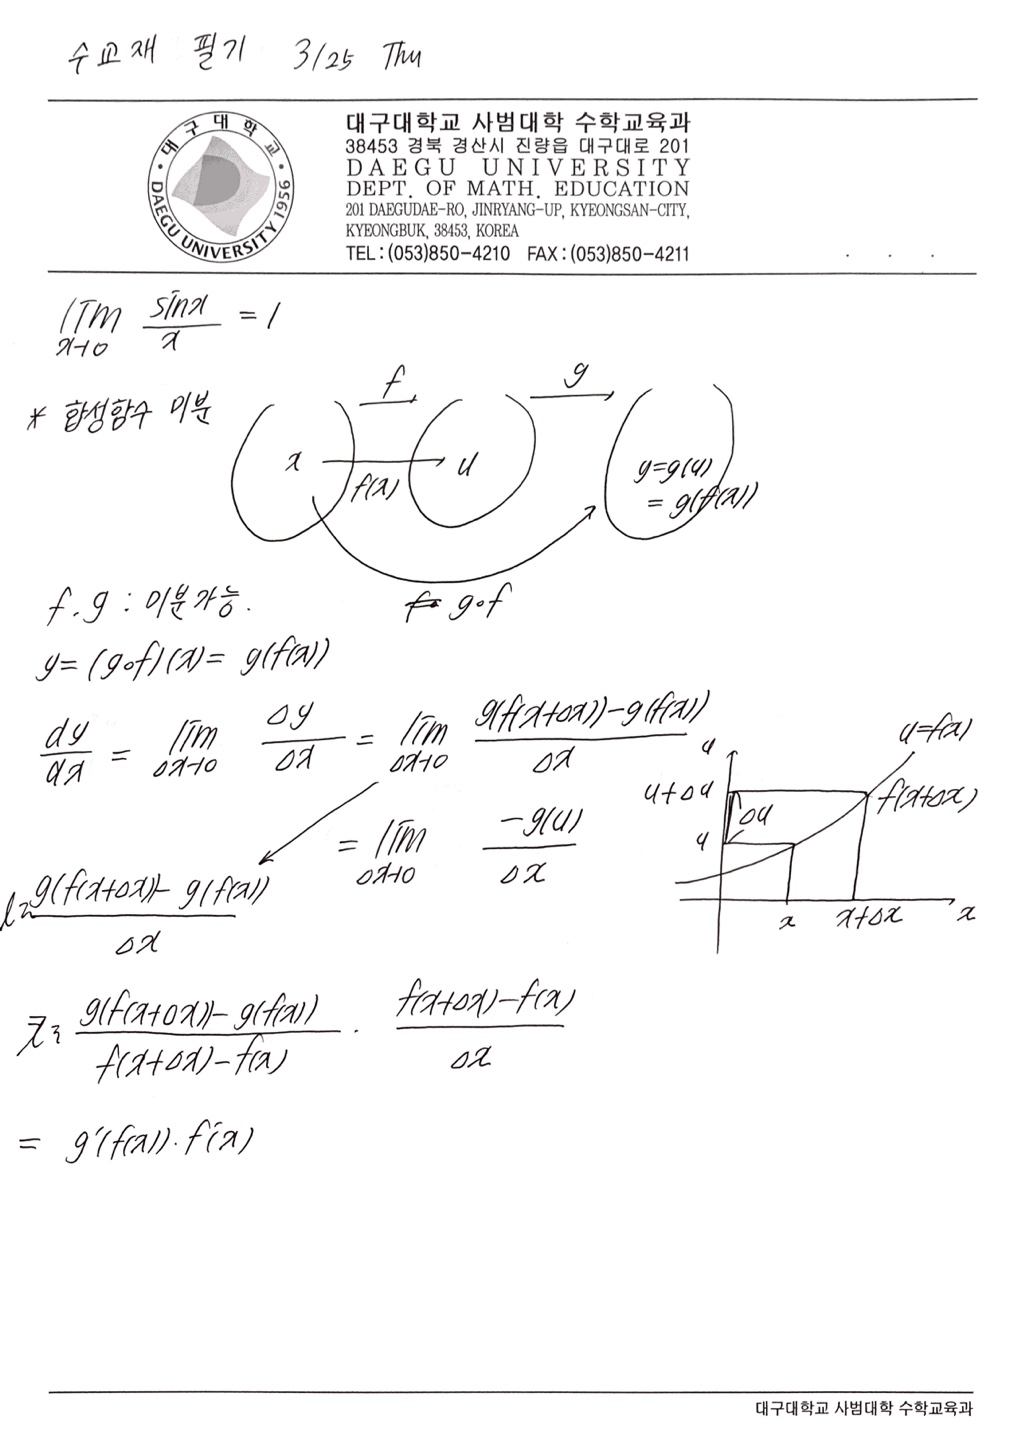 수교재 필기 3/25 Thu
대구대학교
DAEGU UNIVERSITY 1956
대구대학교 사범대학 수학교육과
38453 경북 경산시 진량읍 대구대로 201
DAEGU UNIVERSITY
DEPT. OF MATH. EDUCATION
201 DAEGUDAE-RO, JINRYANG-UP, KYEONGSAN-CITY,
KYEONGBUK, 38453, KOREA
TEL:(053)850-4210 FAX:(053)850-4211
lim x→0 sinx/x = 1
* 합성함수 미분
f g
x f(x) u y=g(u)
= g(f(x))
g∘f
f.g : 미분가능.
y=(g∘f)(x)= g(f(x))
dy/dx = lim Δx→0 Δy/Δx = lim Δx→0 g(f(x+Δx))-g(f(x))/Δx
= lim Δx→0 -g(u)/Δx
u u=f(x)
u+Δu f(x+Δx)
Δu
u
x x+Δx x
g(f(x+Δx))- g(f(x))/Δx
g(f(x+Δx))-g(f(x))/f(x+Δx)-f(x) · f(x+Δx)-f(x)/Δx
= g′(f(x))·f′(x)
대구대학교 사범대학 수학교육과